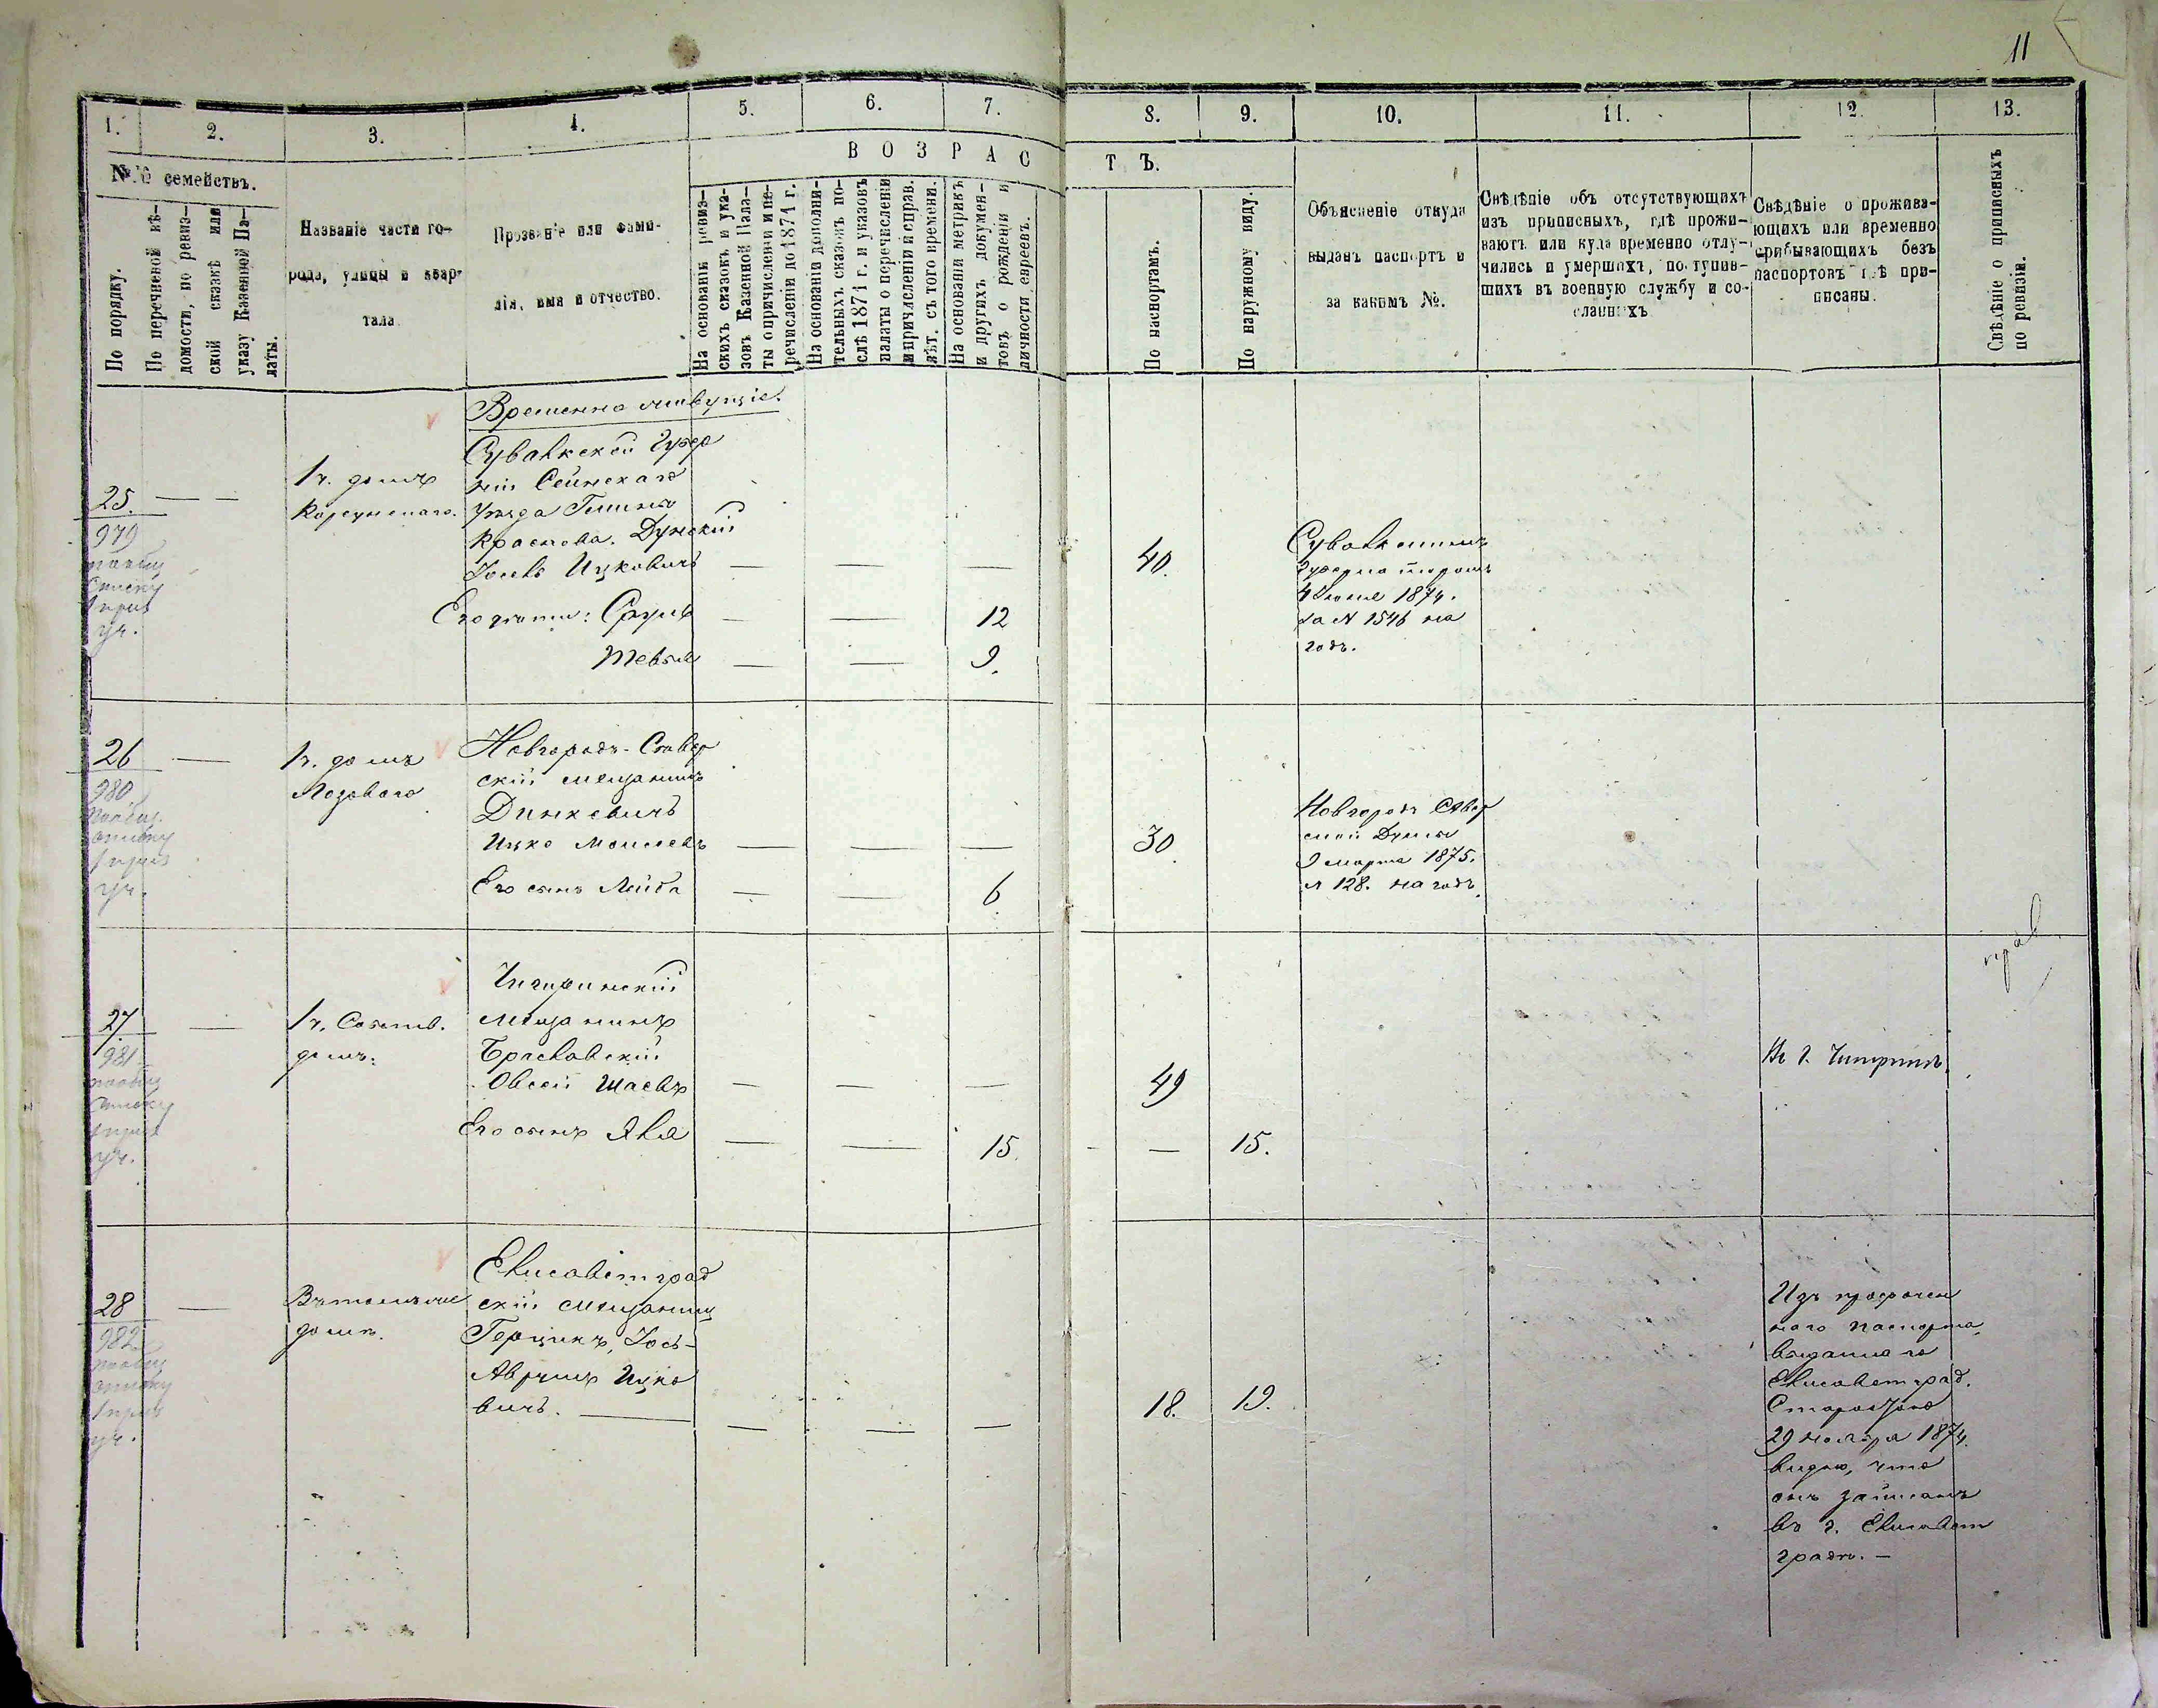 11
1.
2.
3.
4.
5.
6.
7.
8.
9.
10.
11.
12.
13.
№№ семействъ.
По порядку.
По перечневой вѣ-
домости, по ревиз-
ской сказкѣ или
указу Казенной Па-
латы.
Названіе части го-
рода, улицы и квар-
тала
Прозваніе или фами-
лія, имя и отчество.
ВОЗРАСТЪ.
На основаніи ревиз-
скихъ сказокъ и ука-
зовъ Казенной Пала-
ты о причислени и пе-
речислени до 1874 г.
На основаніи дополни-
тельныхъ сказокъ по-
слѣ 1874 г. и указовъ
палаты о перечислени
и причислени и справ.
лѣт. съ того времени.
На основани метрикъ
и другихъ докумен-
товъ о рожденіи и
личности евреевъ.
По паспортамъ.
По наружному виду.
Объясненіе откуда
выданъ паспортъ и
за какимъ №.
Свѣдѣніе объ отсутствующихъ
изъ приписныхъ, гдѣ прожи-
ваютъ или куда временно отлу-
чились и умершихъ, поступив-
шихъ въ военную службу и со-
сланныхъ
Свѣдѣніе о прожива-
ющихъ или временно
прибывающихъ безъ
паспортовъ гдѣ при-
писаны.
Свѣдѣніе о приписныхъ
по ревизіи.
Временно живущіе.
25.
979
1 ч. домъ
Корсунскаго.
Сувалкской Губер
ніи Сейнскаго
Уѣзда Гмины
Краснова. Дунскій
Іосель Ицковичъ — — — 40.
Его дѣти: Сруль — — 12
Тевель — — 9.
Сувалкскимъ
Губернаторомъ
4 Іюня 1874.
за № 1546 на
годъ.
26
980
1 ч. домъ
Лозоваго
Новгородъ-Север
скій мещанинъ
Динкевичъ
Ицко Мошевъ — — — 30.
Его сынъ Лейба — — 6
Новгородъ Север
ской Думы
9 марта 1875.
№ 128. на годъ.
27
981
1 ч. Собств.
домъ.
Чигиринскій
мещанинъ
Браславскій
Овсей Шаевъ — — — 49
Его сынъ — — 15 — 15.
Въ г. Чигиринъ.
28
982
Въ томъ же
домѣ.
Елисаветград
скій мещанинъ
Герцикъ, Іось-
Аврумъ Ицко
вичъ. — — — 18. 19.
Изъ просрочен
наго паспорта,
выданнаго
Елисаветград.
Старостою
29 ноября 1874.
видно, что
онъ записанъ
въ г. Елисавет
градѣ. —